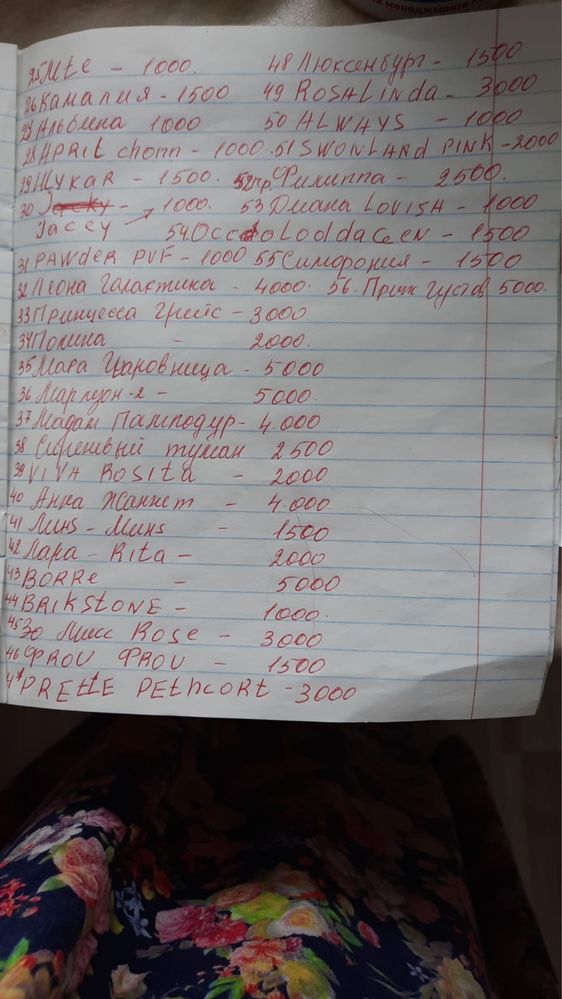 на менеджмента
25 Ute - 1000.
26 Камалия - 1500
27 Альбина 1000
28 APRIL chomn - 1000.
29 Щукар - 1500.
30 Jacey - 1000.
31 PAWdER PUF - 1000
32 Леона Галактика - 4000.
33 Принцесса Грейс - 3000
34 Полина - 2000.
35 Мара Царовница - 5000
36 Марлезон-2 - 5000.
37 Мадам Памподур - 4.000
38 Сиреневый туман 2500
39 VIVA ROSITA - 2000
40 Анна Жаннет - 4.000
41 Линь - Минь - 1500
42 Лара - Rita - 2000
43 BORRe - 5000
44 BRIKSTONE - 1000.
45 Эо Мисс Rose - 3000
46 ФROU ФROU - 1500
47 PREttE PEthcoRt - 3000
48 Люксенбург - 1500
49 ROSALINda - 3000
50 ALWAYS - 1000
51 SWONLAND PINK - 2000
52 пр. Филиппа - 2500.
53 Диана LOVISH - 1000
54. - 1500
55 Симфония - 1500
56. Принс Густав 5000.